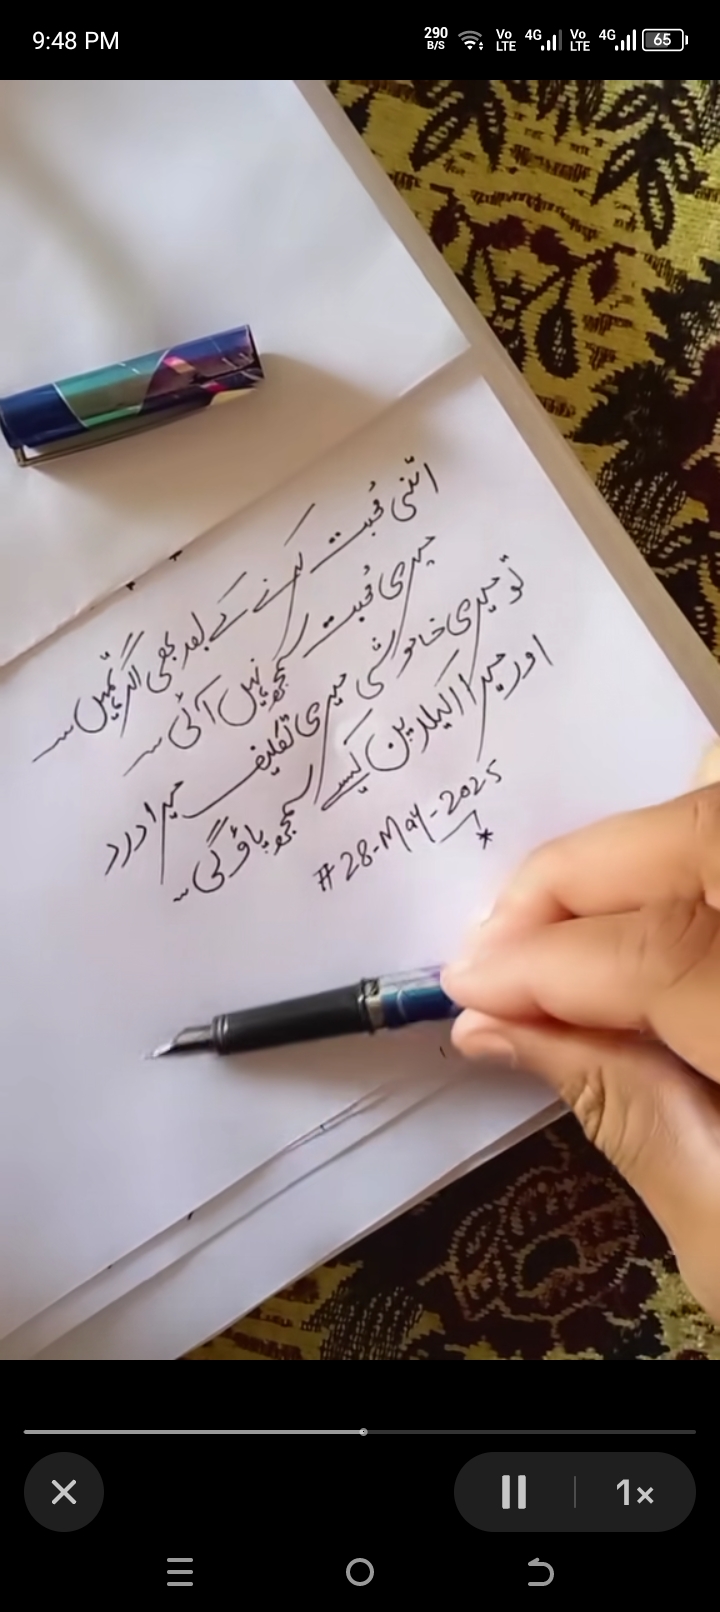 9:48 PM
290 B/S Vo LTE 4G Vo LTE 4G 65
اتنی مُحبت کرنے کے بعد بھی اگر تمہیں۔۔
میری مُحبت سمجھ نہیں آئی۔۔
تو میری خاموشی میری تکلیف میرا درد
اور میرا اکیلا پن کیسے سمجھ پاؤ گی۔۔
#28-May-2025
1×